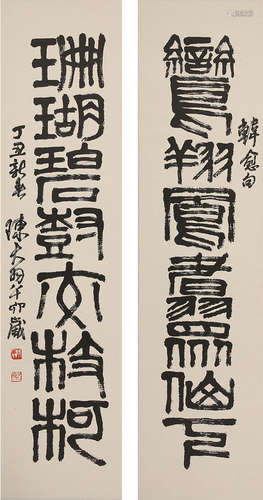 鸞翔鳳翥眾仙下
韓愈句
珊瑚碧樹交枝柯
丁丑新春 陳大羽年八十六歲